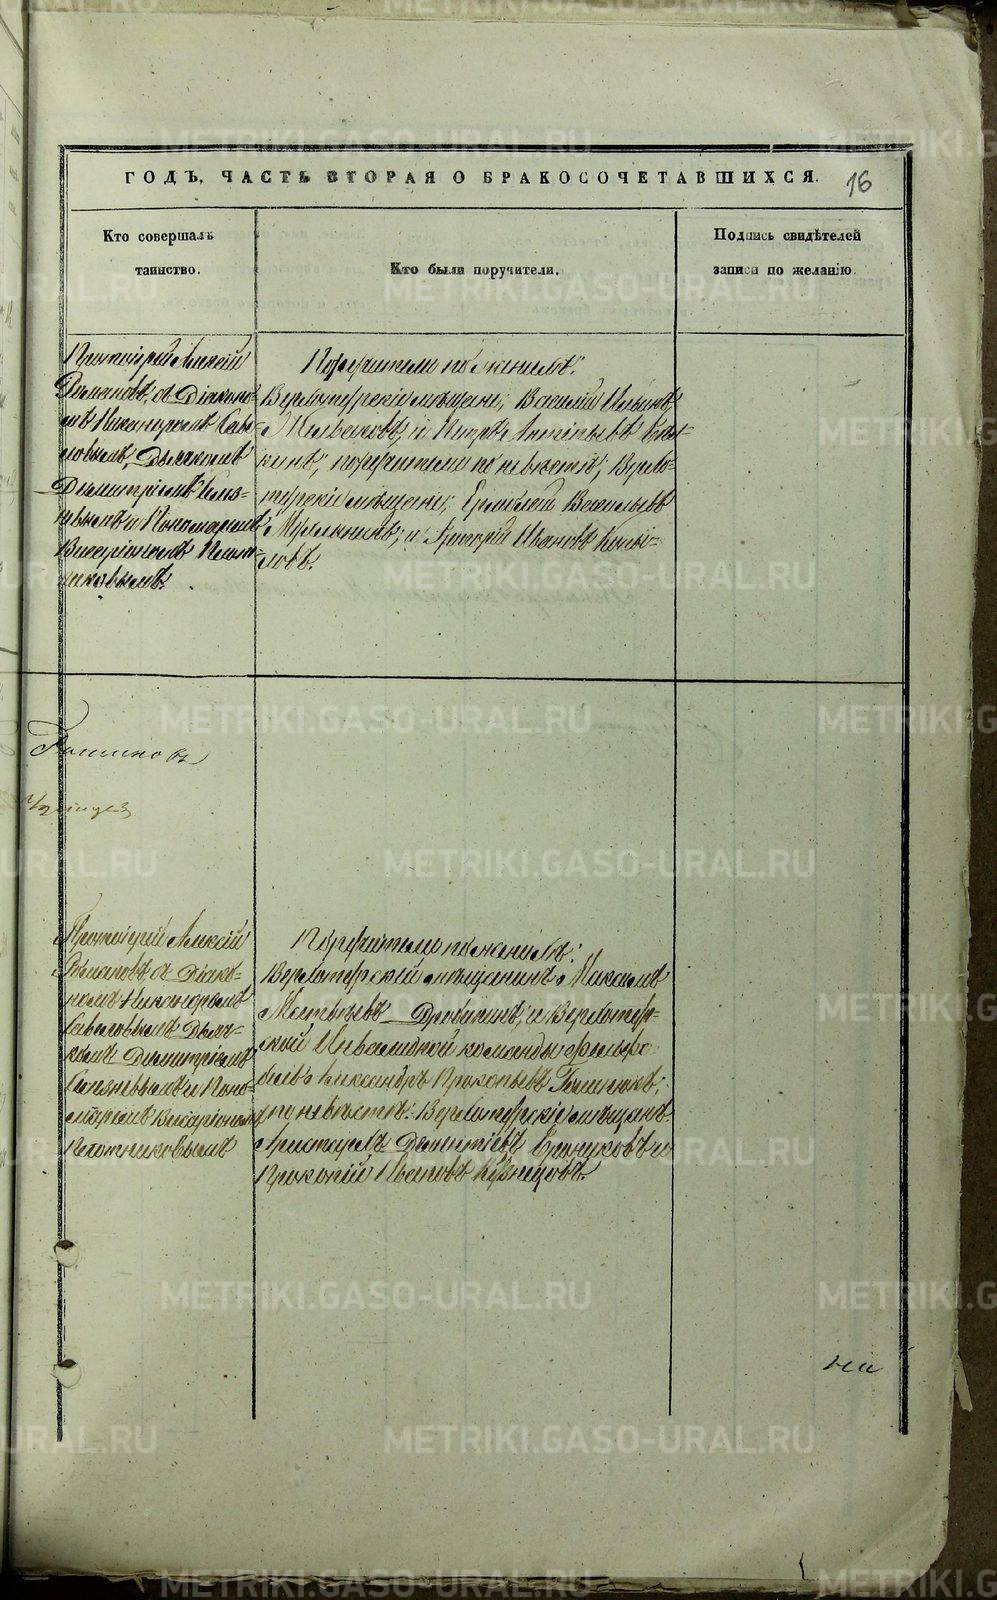 METRIKI.GASO-URAL.RU
ГОДЪ, ЧАСТЬ ВТОРАЯ О БРАКОСОЧЕТАВШИХСЯ.
16
Кто совершалъ
таинство.
Кто были поручители.
Подпись свидѣтелей
записи по желанію.
Протоіерей Алексій
Романовъ, съ Діаконо-
мъ Никаноромъ Сав-
ловымъ, Дьячкомъ
Димитріемъ
и Пономаремъ
Виссаріономъ Плот-
никовымъ.
Поручители по женихѣ:
Верхотурскіе мѣщане; Василій Ильинъ
и Петръ Антипьевъ
поручители по невѣстѣ; Верхо-
турскіе мѣщане; Ермолай Васильевъ
и Григорій Ивановъ Копы-
ловъ.
Протоіерей Алексій
Романовъ съ Діако-
номъ Никаноромъ
Савловымъ Дьяч-
комъ Димитріемъ
и Поно-
маремъ Виссаріономъ
Плотниковымъ
Поручители по женихѣ:
Верхотурскій мѣщанинъ Максимъ
Матвѣевъ Дробининъ, и Верхотур-
ской Инвалидной команды
Александръ Прокопьевъ
по невѣстѣ: Верхотурскіе мѣщане
Аристархъ Дементіевъ и
Прокопій Ивановъ Кузнецовъ.